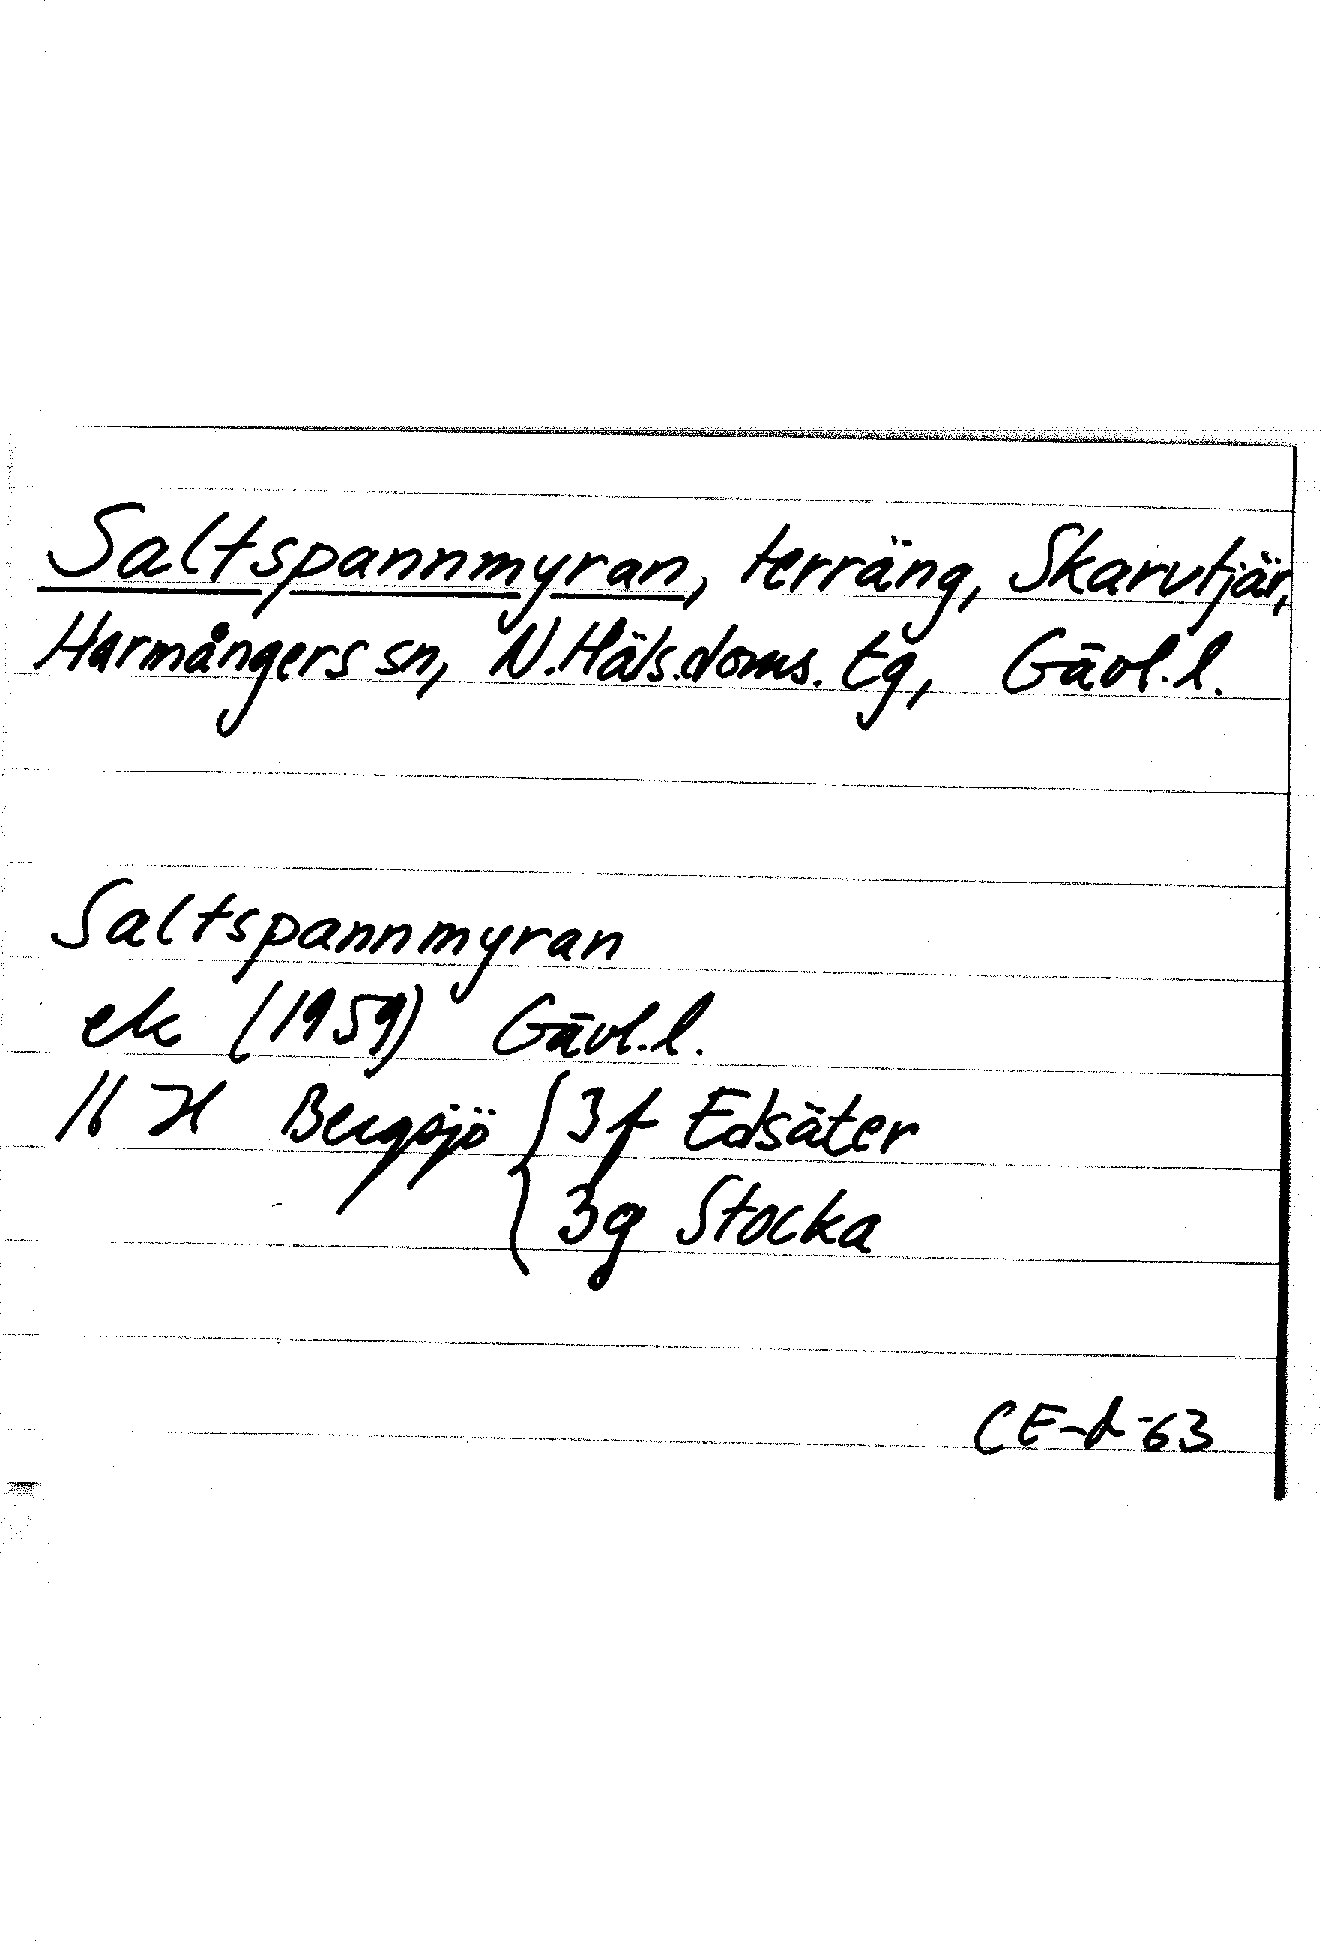 Saltspannmyran, terräng, Skarvtjär,
Harmångers sn, N.Häls.doms.tg, Gävl.l.
Saltspannmyran
ek (1959) Gävl.l.
16 H Bergsjö { 3f Edsäter
3g Stocka
CE-d-63